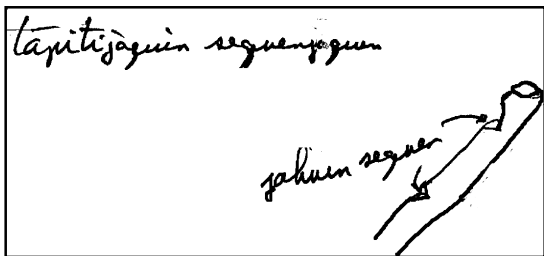 tapitijaquin sequenjaquen
jahuen sequen